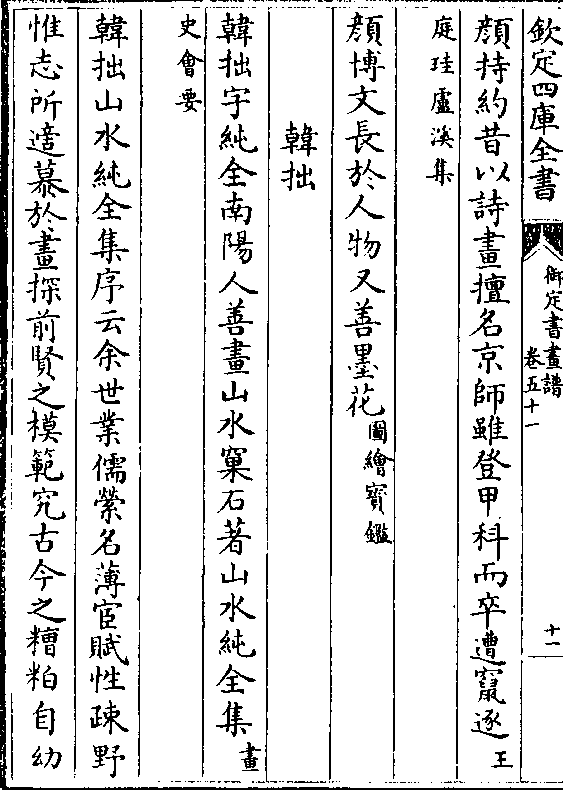 欽定四庫全書
御定書畫譜
卷五十一
十一
顔持約昔以詩畫擅名京師雖登甲科而卒遭竄逐王
庭珪盧溪集
顔博文長於人物又善墨花圖繪寳鑑
韓拙
韓拙字純全南陽人善畫山水窠石著山水純全集畫
史會要
韓拙山水純全集序云余世業儒縈名薄宦賦性疎野
惟志所適慕於畫探前賢之模範究古今之糟粕自幼